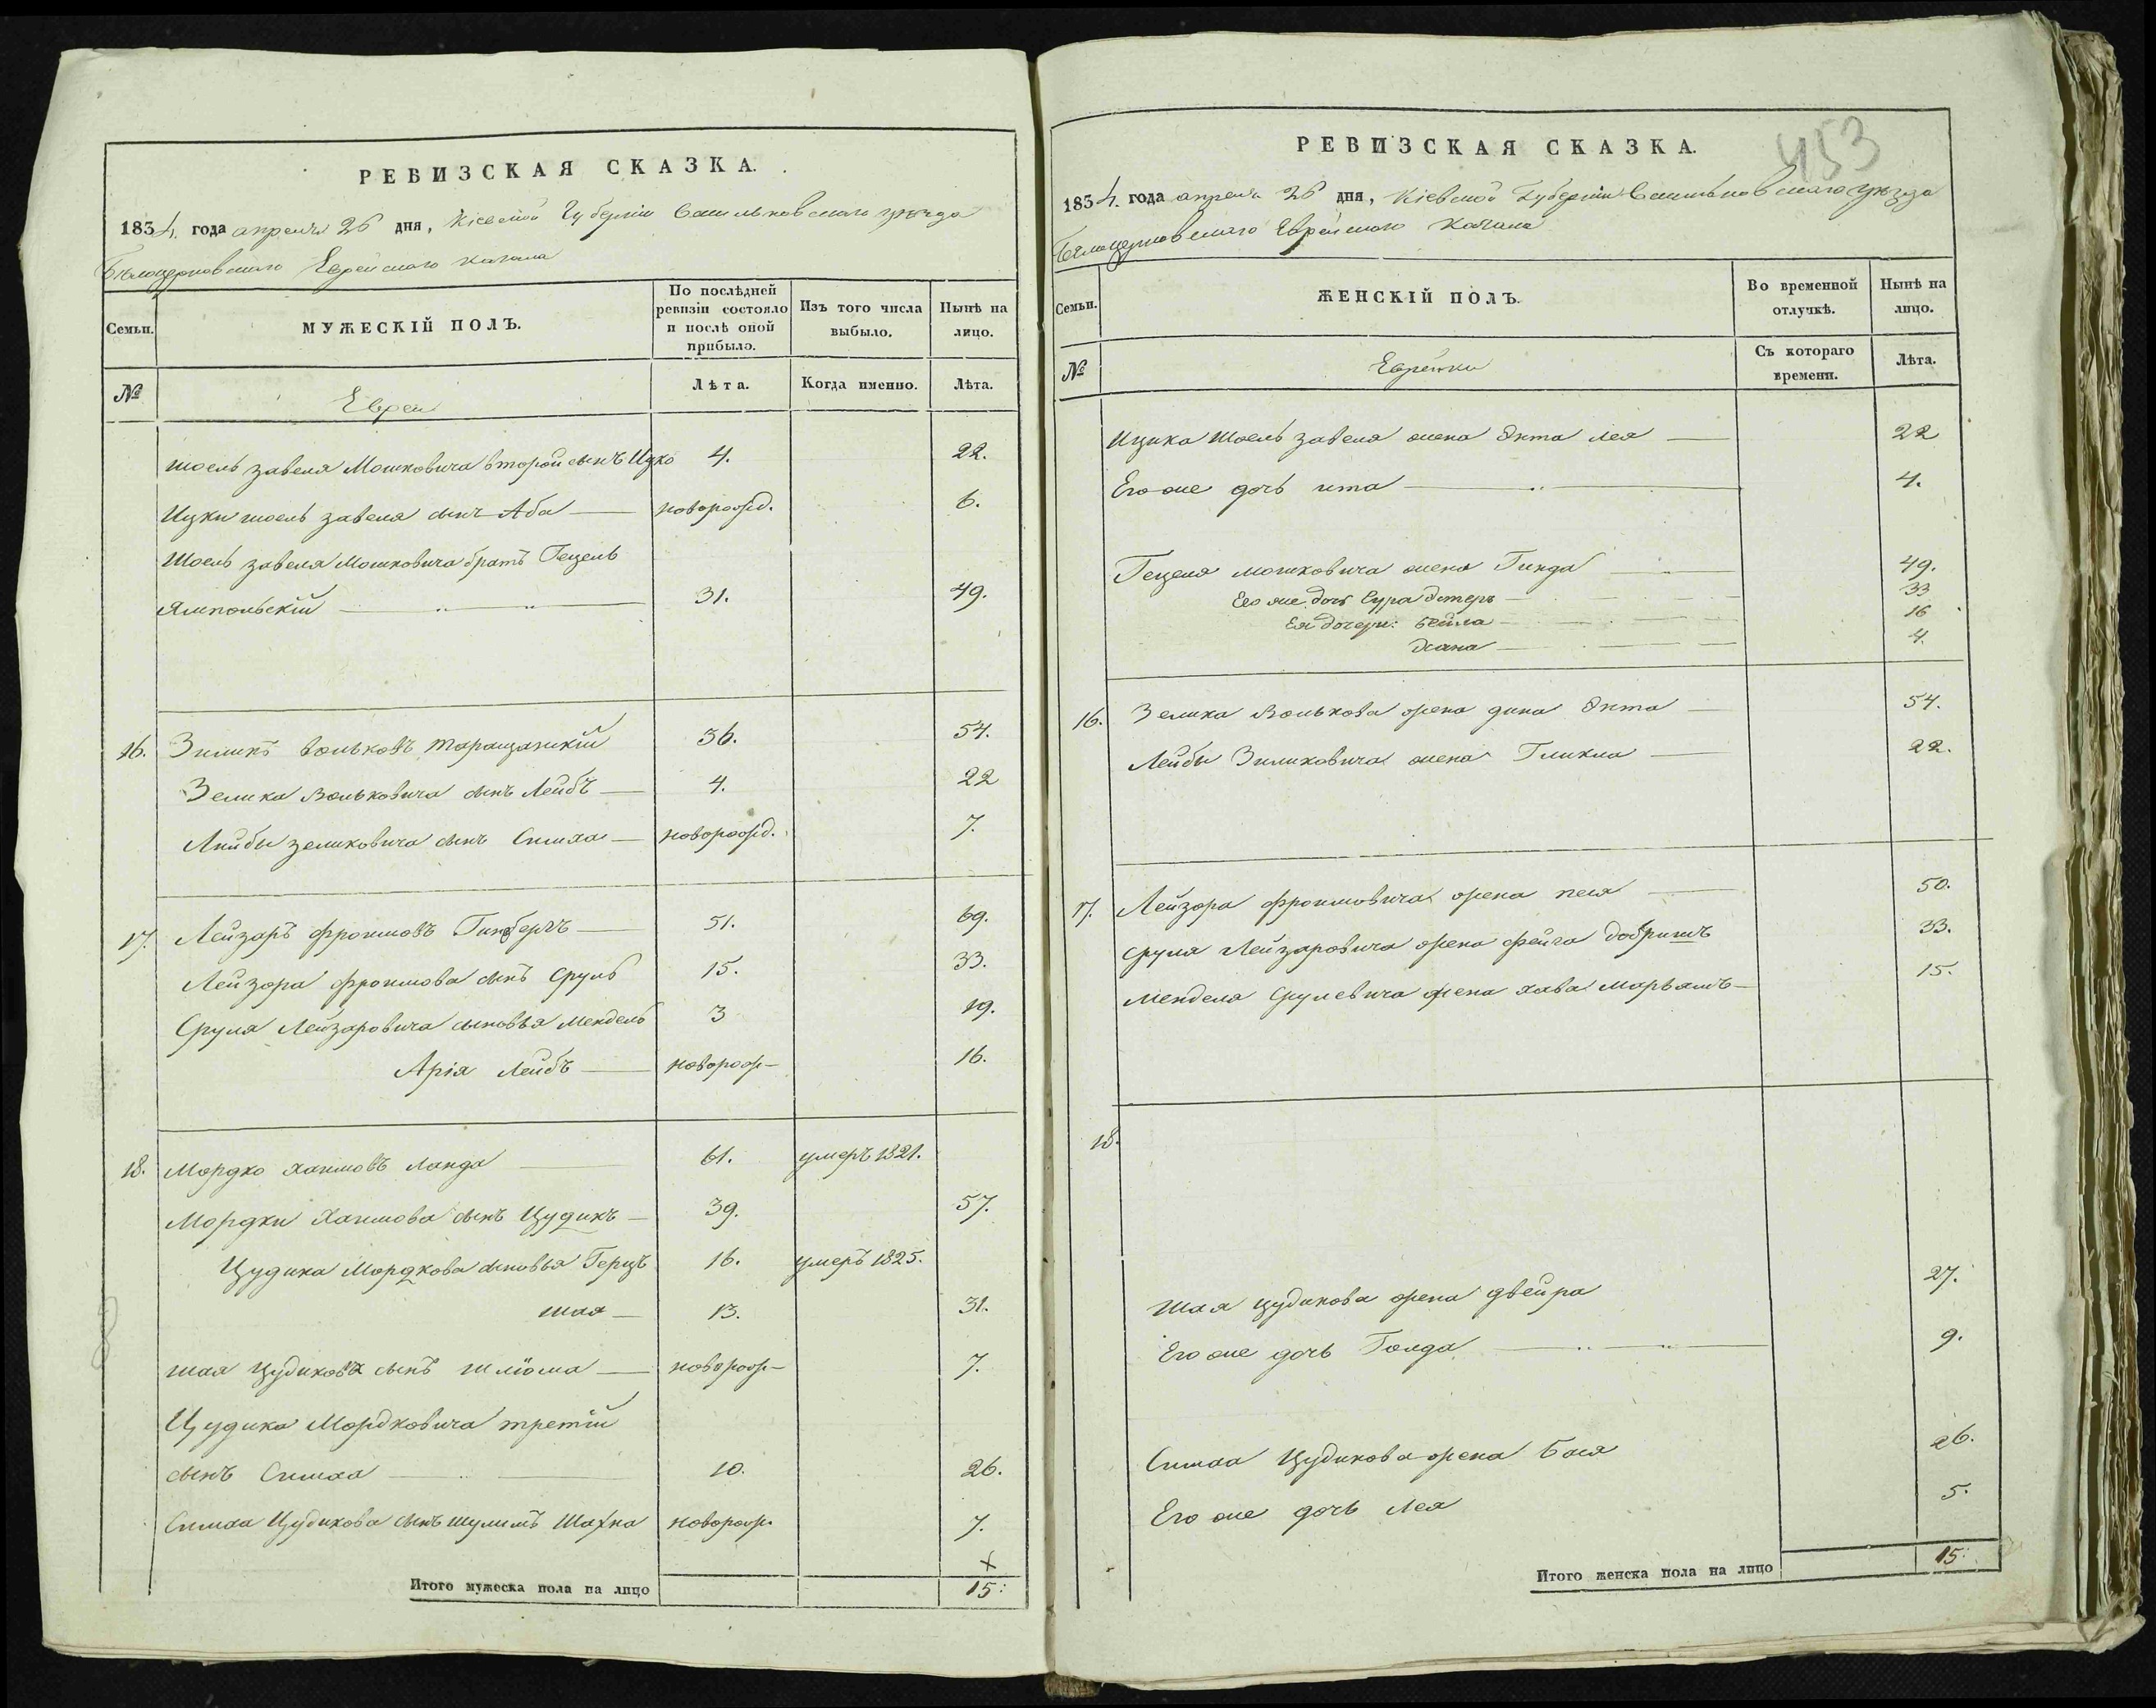 РЕВИЗСКАЯ СКАЗКА.
1834. года апреля 26 дня, Кіевской Губерніи Васильковскаго уѣзда
Бѣлоцерковскаго Еврейскаго Кагала
Семьи.
МУЖЕСКІЙ ПОЛЪ.
По послѣдней ревизіи состояло и послѣ оной прибыло.
Изъ того числа выбыло.
Нынѣ на лицо.
№
Евреи
Лѣта.
Когда именно.
Лѣта.
Шоель завеля Мошковича второй сынъ Ицко 4. 22.
Ицки шоель завеля сынъ Аба новорожд. 6.
Шоель завеля Мошковича братъ Гецель
Ямпольскій 31. 49.
16. Зиликъ вольковъ таращанскій 36. 54.
Зелика Вольковича сынъ Лейбъ 4. 22
Лейбы зеликовича сынъ Симха новорожд. 7.
17. Лейзоръ фроимовъ Гинзбергъ 51. 69.
Лейзора фроимова сынъ Сруль 15. 33.
Сруля Лейзаровича сыновья Мендель 3 19.
Арія Лейбъ новорож 16.
18. Мордко хаимовъ Ланда 61. умеръ 1821.
Мордки Хаимова сынъ Цудикъ 39. 57.
Цудика Мордкова сыновья Герцъ 16. умеръ 1825.
шая 13. 31.
шая Цудикова сынъ шлiома новорож 7.
Цудика Мордковича третій
сынъ Симха 10. 26.
Симха Цудикова сынъ шулимъ Шахна новорож. 7.
Итого мужеска пола на лицо 15:
453
РЕВИЗСКАЯ СКАЗКА.
1834. года апреля 26 дня, Кіевской Губерніи Васильковскаго уѣзда
Бѣлоцерковскаго Еврейскаго Кагала
Семьи.
ЖЕНСКІЙ ПОЛЪ.
Во временной отлучкѣ.
Нынѣ на лицо.
№
Еврейки
Съ котораго времени.
Лѣта.
Ицика Шоель завеля жена Экта лея 22
Его же дочь ита 4.
Гецеля мошковича жена Гинда 49.
Его же дочь Сура Эстеръ 33
Ея дочери: Бейла 16
Хана 4.
16. Зелика Волькова жена дина Экта 54.
Лейбы Зиликовича жена Гликла 22.
17. Лейзора фроимовича жена песя 50.
Сруля Лейзаровича жена фейга добришъ 33.
Менделя Срулевича жена хава Марьямъ 15.
18.
Шая цудикова жена двейра 27.
Его же дочь Голда 9.
Симха Цудикова жена Бася 26.
Его же дочь Лея 5.
Итого женска пола на лицо 15: